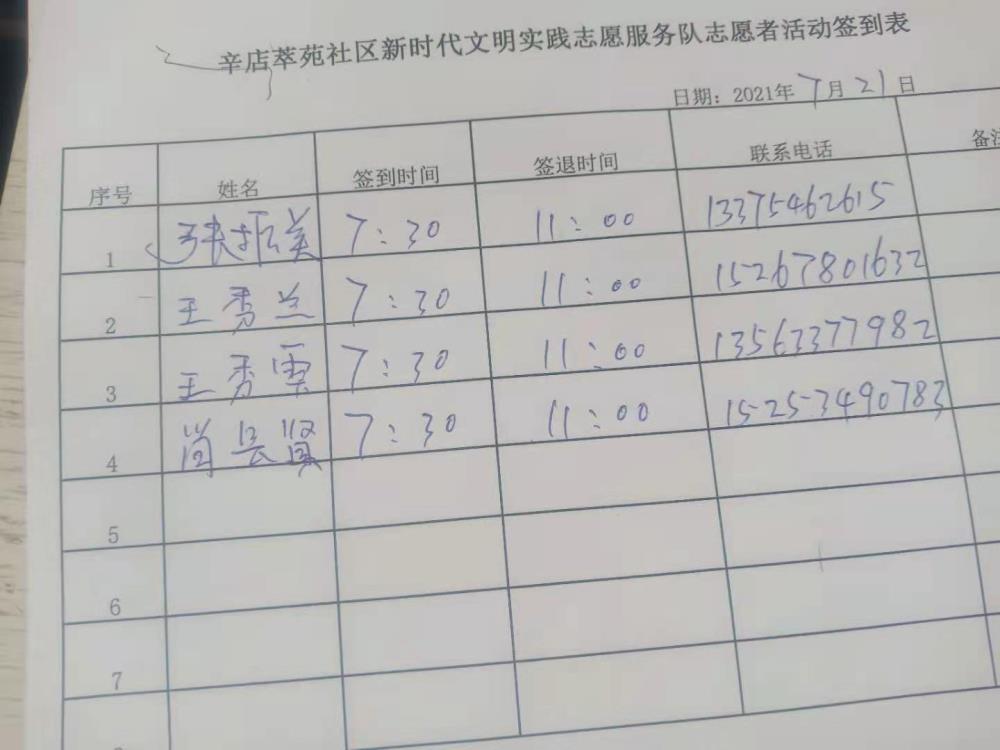 辛店萃苑社区新时代文明实践志愿服务队志愿者活动签到表
日期：2021年7月21日
序号 姓名 签到时间 签退时间 联系电话 备注
1 张振美 7:30 11:00 13375462615
2 王秀兰 7:30 11:00 15267801632
3 王秀云 7:30 11:00 13563377982
4 7:30 11:00 15253490783
5
6
7